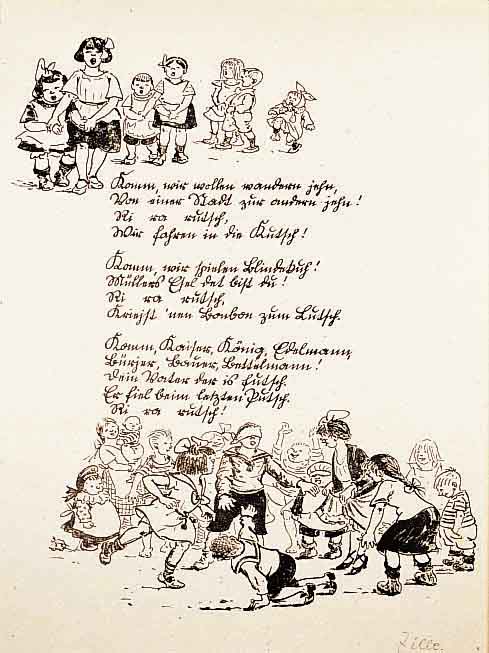 Komm, wir wollen wandern jehn,
Von einer Stadt zur andern jehn!
Ri ra rutsch,
Wir fahren in die Kutsch!
Komm, wir spielen Blindekuh!
Müllers Esel det bist du!
Ri ra rutsch,
Kriejst 'nen Bonbon zum Lutsch.
Komm, Kaiser, König, Edelmann,
Bürjer, Bauer, Bettelmann!
Dein Vater der is futsch.
Er fiel beim letzten Putsch.
Ri ra rutsch!
Zille.